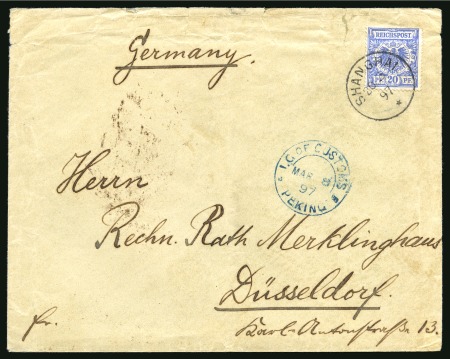 Germany.
REICHSPOST
20 PF
SHANGHAI
97
I.G. OF CUSTOMS
MAR 8
97
PEKING
Herrn
Rechn. Rath Merklinghaus
Düsseldorf.
Karl-Antonstraße 13.
fr.